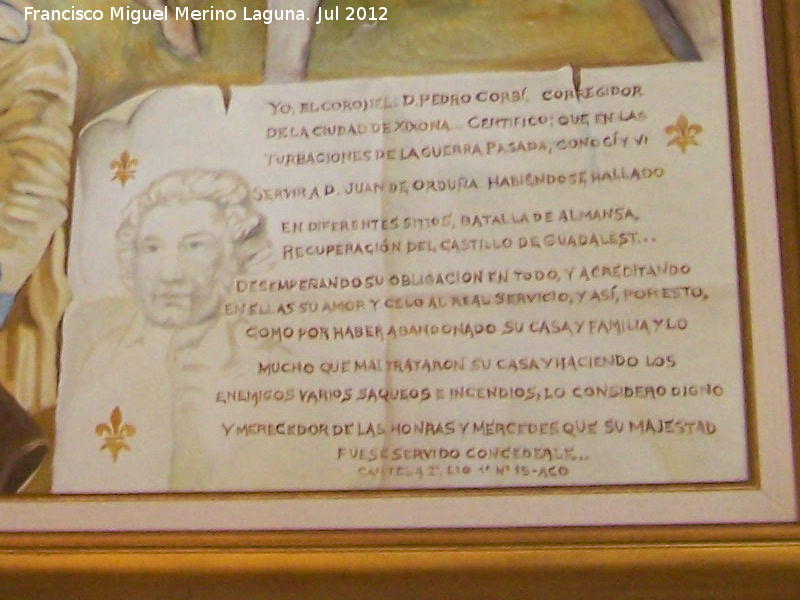 Francisco Miguel Merino Laguna. Jul 2012
YO, EL CORONEL: D. PEDRO CORBÍ, CORREGIDOR
DE LA CIUDAD DE XIXONA... CERTIFICO: QUE EN LAS
TURBACIONES DE LA GUERRA PASADA, CONOCÍ Y VI
SERVIR A D. JUAN DE ORDUÑA HABIÉNDOSE HALLADO
EN DIFERENTES SITIOS, BATALLA DE ALMANSA,
RECUPERACIÓN DEL CASTILLO DE GUADALEST...
DESEMPEÑANDO SU OBLIGACION EN TODO, Y ACREDITANDO
EN ELLAS SU AMOR Y CELO AL REAL SERVICIO, Y ASÍ, POR ESTO,
COMO POR HABER ABANDONADO SU CASA Y FAMILIA Y LO
MUCHO QUE MALTRATARON SU CASA Y HACIENDO LOS
ENEMIGOS VARIOS SAQUEOS E INCENDIOS, LO CONSIDERO DIGNO
Y MERECEDOR DE LAS HONRAS Y MERCEDES QUE SU MAJESTAD
FUESE SERVIDO CONCEDERLE...
Nº 15-ACO